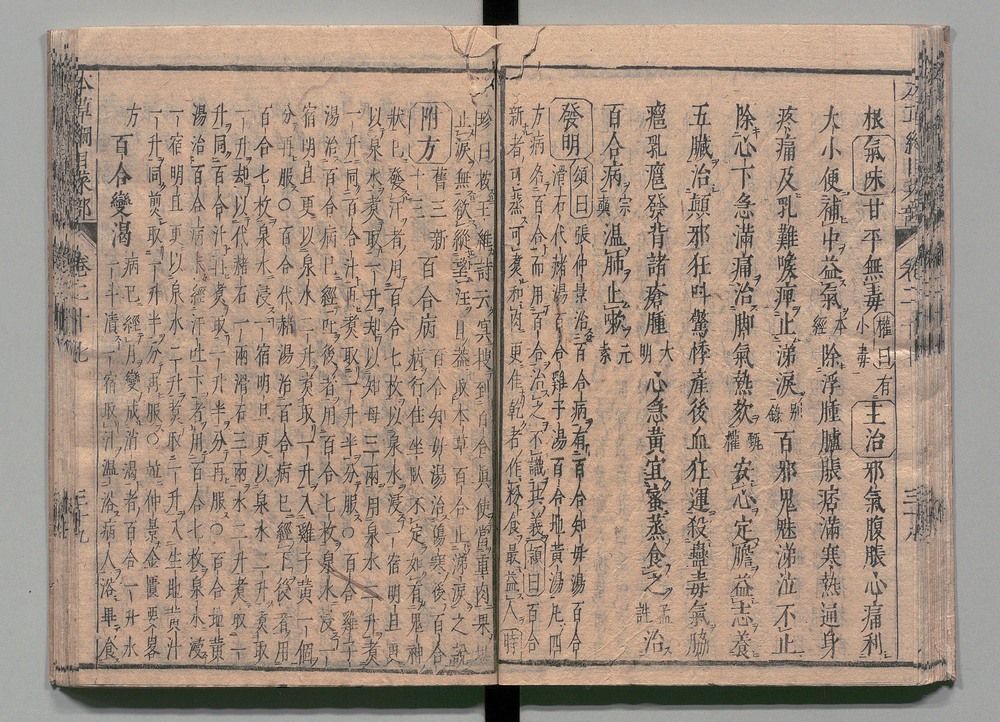 根 氣味 甘平無毒 權曰有小毒 主治 邪氣腹脹心痛利
大小便補中益氣 本經 除浮腫臚脹痞滿寒熱通身
疼痛及乳難喉痺止涕淚 別錄 百邪鬼魅涕泣不止
除心下急滿痛治脚氣熱欬 甄權 安心定膽益志養
五臟治顛邪狂叫驚悸產後血狂運殺蠱毒氣脇
癰乳癰發背諸瘡腫 大明 心急黃宜蜜蒸食之 孟詵 治
百合病 宗奭 溫肺止嗽 元素
發明 頌曰張仲景治百合病有百合知母湯百合
滑石代赭湯百合雞子湯百合地黃湯凡四
方病名百合而用百合治之不識其義 頴曰百合
新者可蒸可煮和肉更佳乾者作粉食最益人 時
珍曰按王維詩云冥搜到百合真使當重肉果堪
止淚無欲縱望江目蓋取本草百合止涕淚之說
附方 舊三新十三 百合病 百合知母湯治傷寒後百合
病行住坐臥不定如有鬼神
狀已發汗者用百合七枚以泉水浸一宿明旦更
以泉水煮取一升却以知母三兩用泉水一升煮
一升同百合汁再煮取一升半分服○百合雞子
湯治百合病已經吐後者用百合七枚泉水浸一
宿明旦更以泉水二升煮取一升入雞子黃一個
分再服○百合代赭湯治百合病已經下後者用
百合七枚泉水浸一宿明旦更以泉水二升煮取
一升却以代赭石一兩滑石三兩水二升煮取一
升同百合汁再煮取一升半分再服○百合地黃
湯治百合病未經汗吐下者用百合七枚泉水浸
一宿明旦更以泉水二升煮取一升入生地黃汁
一升同煎取一升半分再服○並仲景金匱要畧
方 百合變渴 病已經月變成消渴者百合一升水
一斗漬一宿取汁溫浴病人浴畢食
本草綱目菜部 卷二十七 三十九